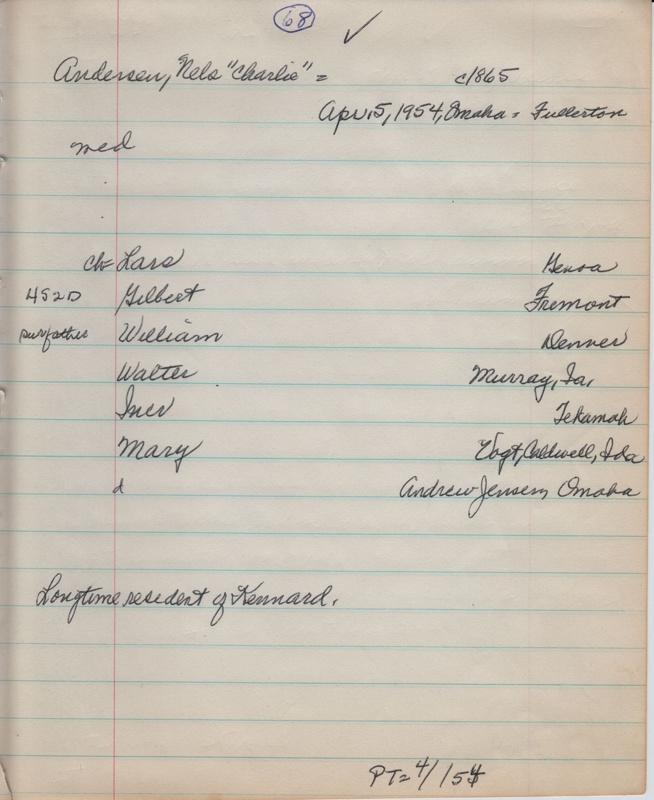 68 ✓
Andersen, Nels "Charlie" = c1865
Apr. 5, 1954, Omaha = Fullerton
med
ch= Lars Genoa
4S2D Gilbert Fremont
surv father William Denver
Walter Murray, Ia.
Iner Tekamah
Mary Vogt, Caldwell, Ida
d Andrew Jensen, Omaha
Longtime resident of Kennard.
PT= 4/ /54